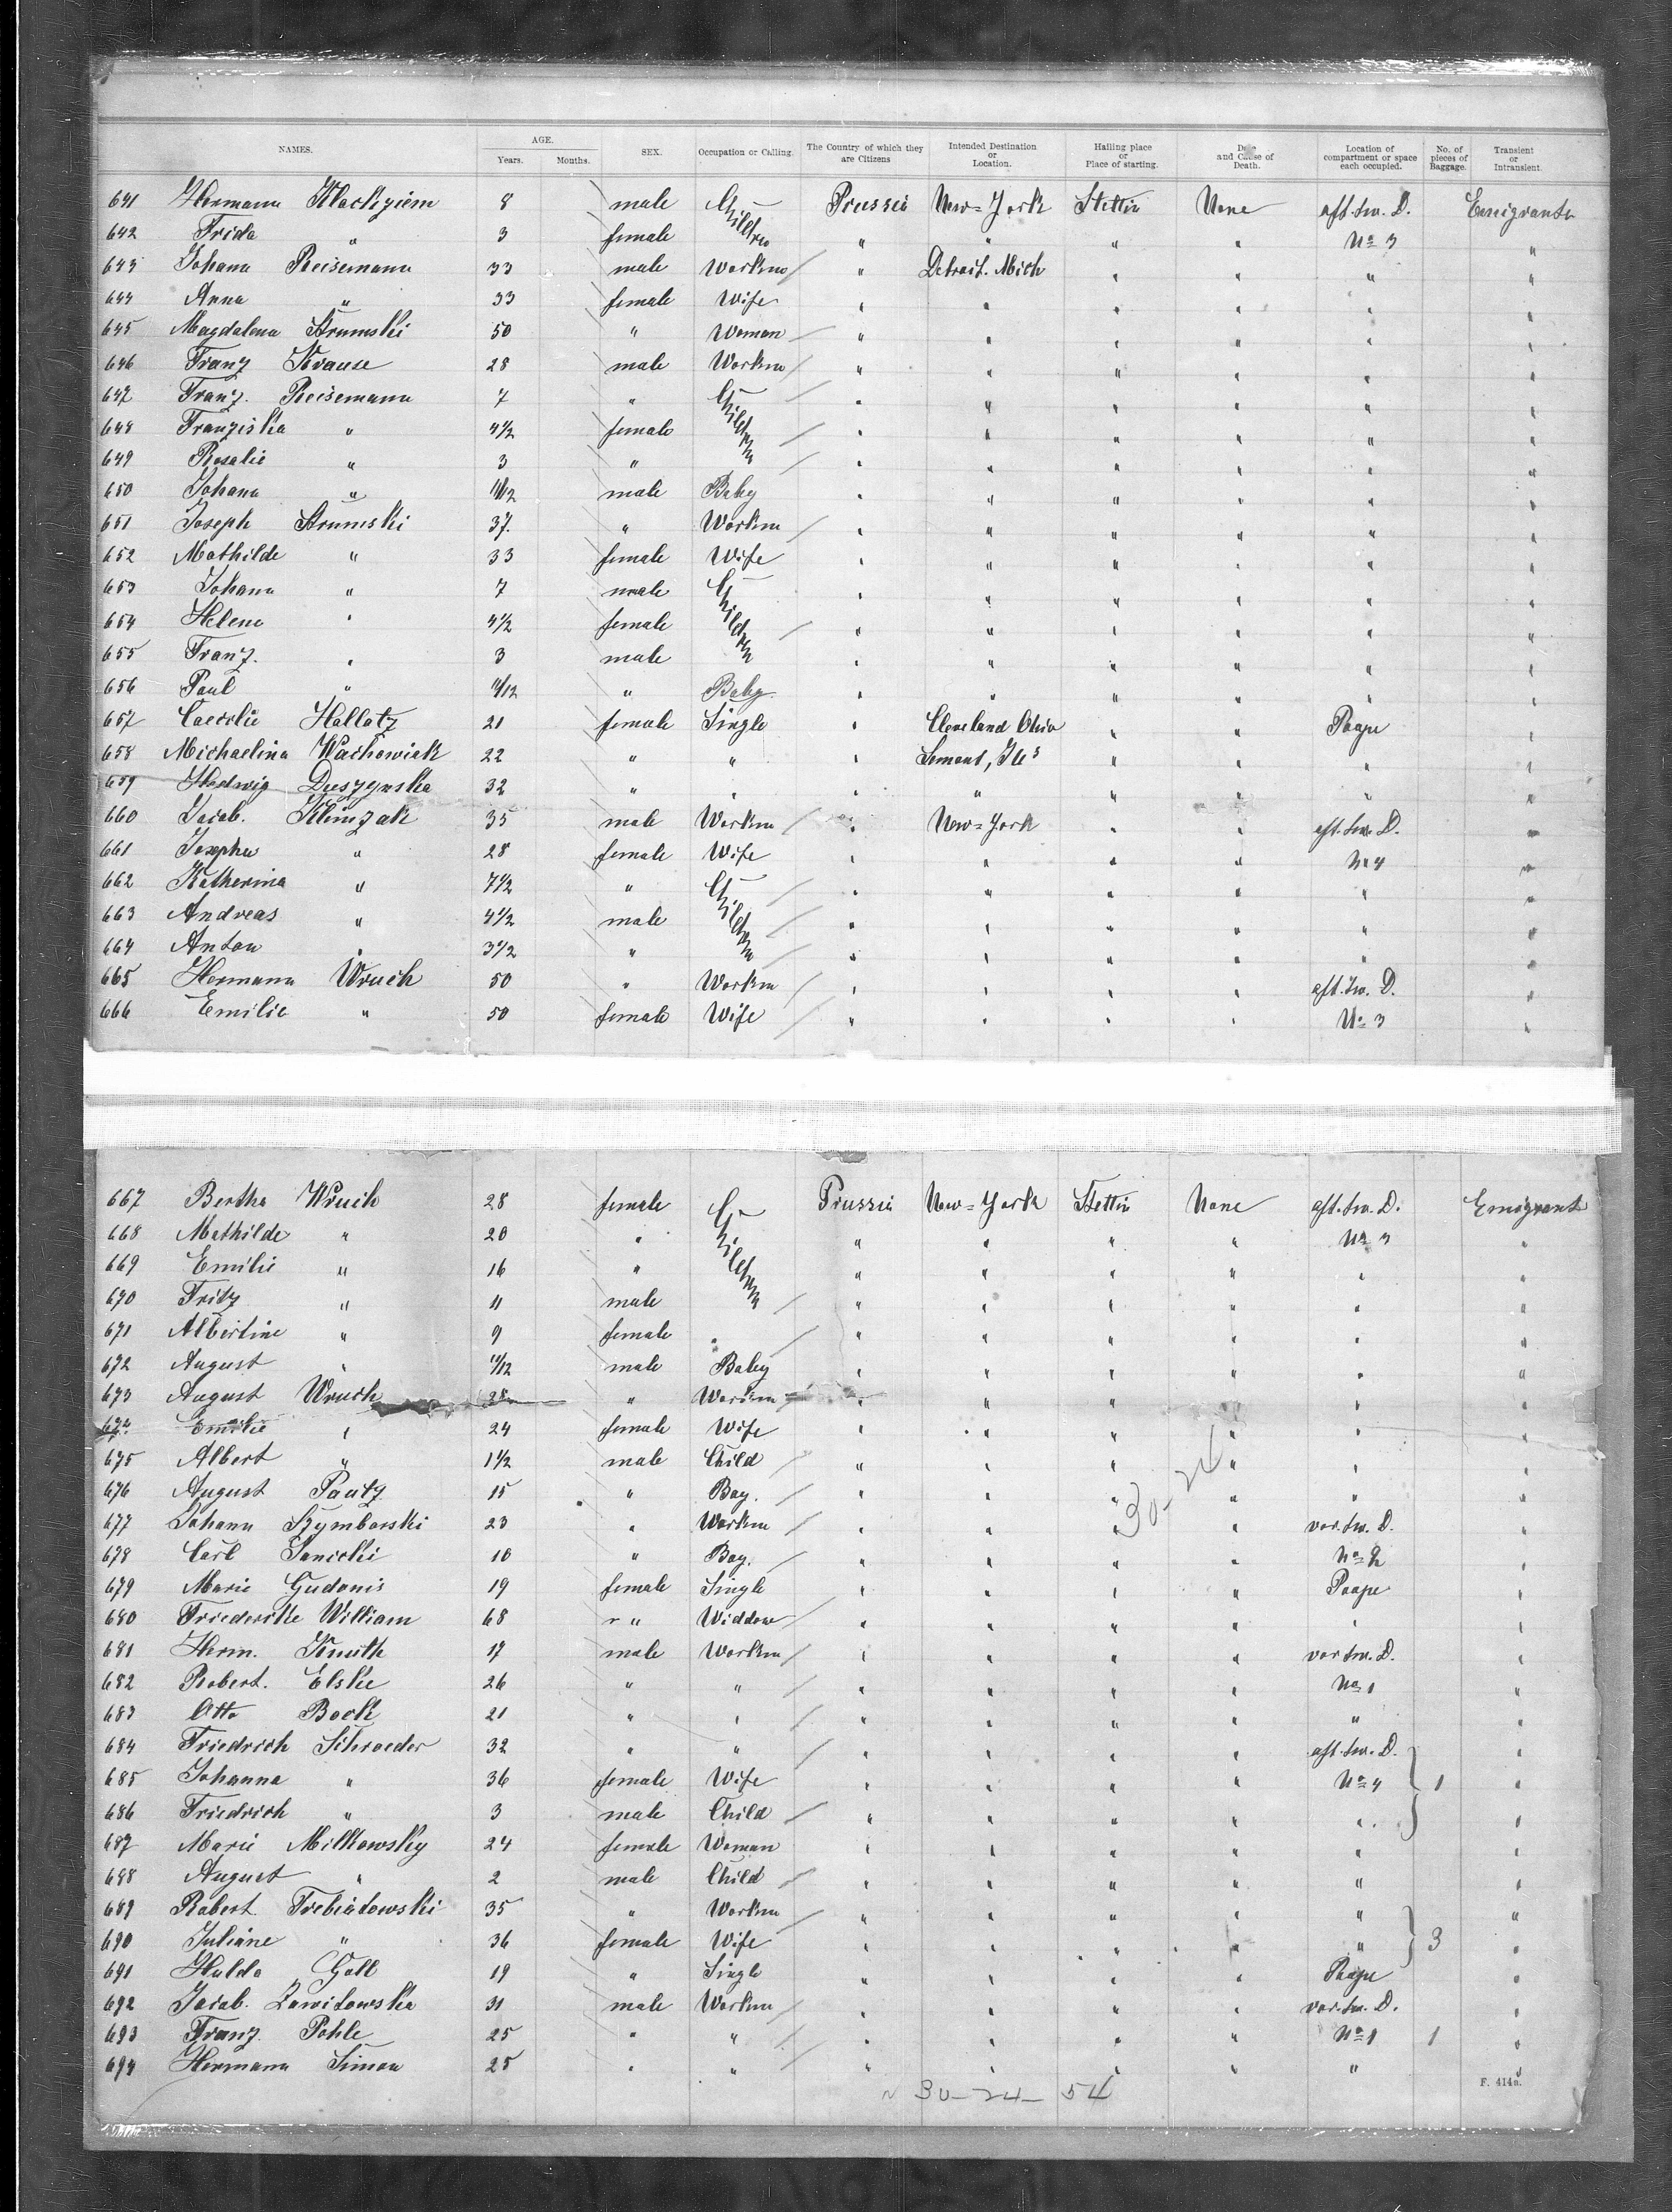 NAMES. AGE. Years. Months. SEX. Occupation or Calling. The Country of which they are Citizens Intended Destination or Location. Hailing place or Place of starting. and Cause of Death. Location of compartment or space each occupied. No. of pieces of Baggage. Transient or Intransient.
641 Hermann 8 male Children Prussia New=York Stettin None aft.tw. D. Emigrants
642 Frida " 3 female " " " " No 3 "
643 Johann Reisemann 33 male Workm " Detroit. Mich " " " "
644 Anna " 33 female Wife " " " " " "
645 Magdalena Strumski 50 " Woman " " " " " "
646 Franz Krause 28 male Workm " " " " " "
647 Franz. Reisemann 7 " Children " " " " " "
648 Franziska " 4 1/2 female " " " " " "
649 Rosalie " 3 " " " " " " "
650 Johann " 11/12 male Baby " " " " " "
651 Joseph Strumski 37. " Workm " " " " " "
652 Mathilde " 33 female Wife " " " " " "
653 Johann " 7 male Children " " " " " "
654 Helene " 4 1/2 female " " " " " "
655 Franz. " 3 male " " " " " "
656 Paul " 11/12 " Baby " " " " " "
657 Caecilie Hallatz 21 female Single " Cleveland Ohio " " Poope "
658 Michaelina Wachowiak 22 " " " Lemont, Ills " " " "
659 Hedwig Duszynska 32 " " " " " " " "
660 Jacob. Klimzak 35 male Workm " New=York " " aft. tw. D. "
661 Josepha " 28 female Wife " " " " No 4 "
662 Katherina " 7 1/2 " Children " " " " " "
663 Andreas " 4 1/2 male " " " " " "
664 Anton " 3 1/2 " " " " " " "
665 Hermann Wruch 50 " Workm " " " " aft. tw. D. "
666 Emilie " 50 female Wife " " " " No 3 "
667 Bertha Wruch 28 female Children Prussia New=York Stettin None aft. tw. D. Emigrants
668 Mathilde " 20 " " " " " No 3 "
669 Emilie " 16 " " " " " " "
670 Fritz " 11 male " " " " " "
671 Albertine " 9 female " " " " " " "
672 August " 11/12 male Baby " " " " " "
673 August Wruch 28 " Workm " " " " " "
674 Emilie " 24 female Wife " " " " " "
675 Albert " 1 1/2 male Child " " " " " "
676 August Pautz 15 " Boy. " " " " " "
677 Johann Szymborski 23 " Workm " " " " vor. tw. D. "
30-24
678 Carl Janicki 10 " Boy. " " " " No 2 "
679 Marie Gudanis 19 female Single " " " " Poope "
680 Friedericke William 68 " Widdow " " " " " "
681 Herm. Knuth 17 male Workm " " " " vor tw. D. "
682 Robert. Elske 26 " " " " " " No 1 "
683 Otto Bock 21 " " " " " " " "
684 Friedrich Schroeder 32 " " " " " " aft. tw. D. "
685 Johanna " 36 female Wife " " " " No 4 1 "
686 Friedrich " 3 male Child " " " " " "
687 Marie Milkowsky 24 female Woman " " " " " "
688 August " 2 male Child " " " " " "
689 Robert Trebiatowski 35 " Workm " " " " " "
690 Juliane " 36 female Wife " " " " " 3 "
691 Hulda Goll 19 " Single " " " " Poope "
692 Jacob. Zawitowska 31 male Workm " " " " vor. tw. D. "
693 Franz. Pohle 25 " " " " " " No 1 1 "
694 Hermann Simon 25 " " " " " " " "
30-24-54
F. 414n.